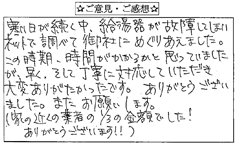 ☆ご意見・ご感想☆
寒い日が続く中、給湯器が故障してしまい
ネットで調べて御社にめぐりあえました。
この時期、時間がかかるかと思っていました
が、早く、そして丁寧に対応していただき
大変ありがたかったです。ありがとうござい
ました。またお願いします。
(家の近くの業者の1/3の金額でした!
ありがとうございます!!)